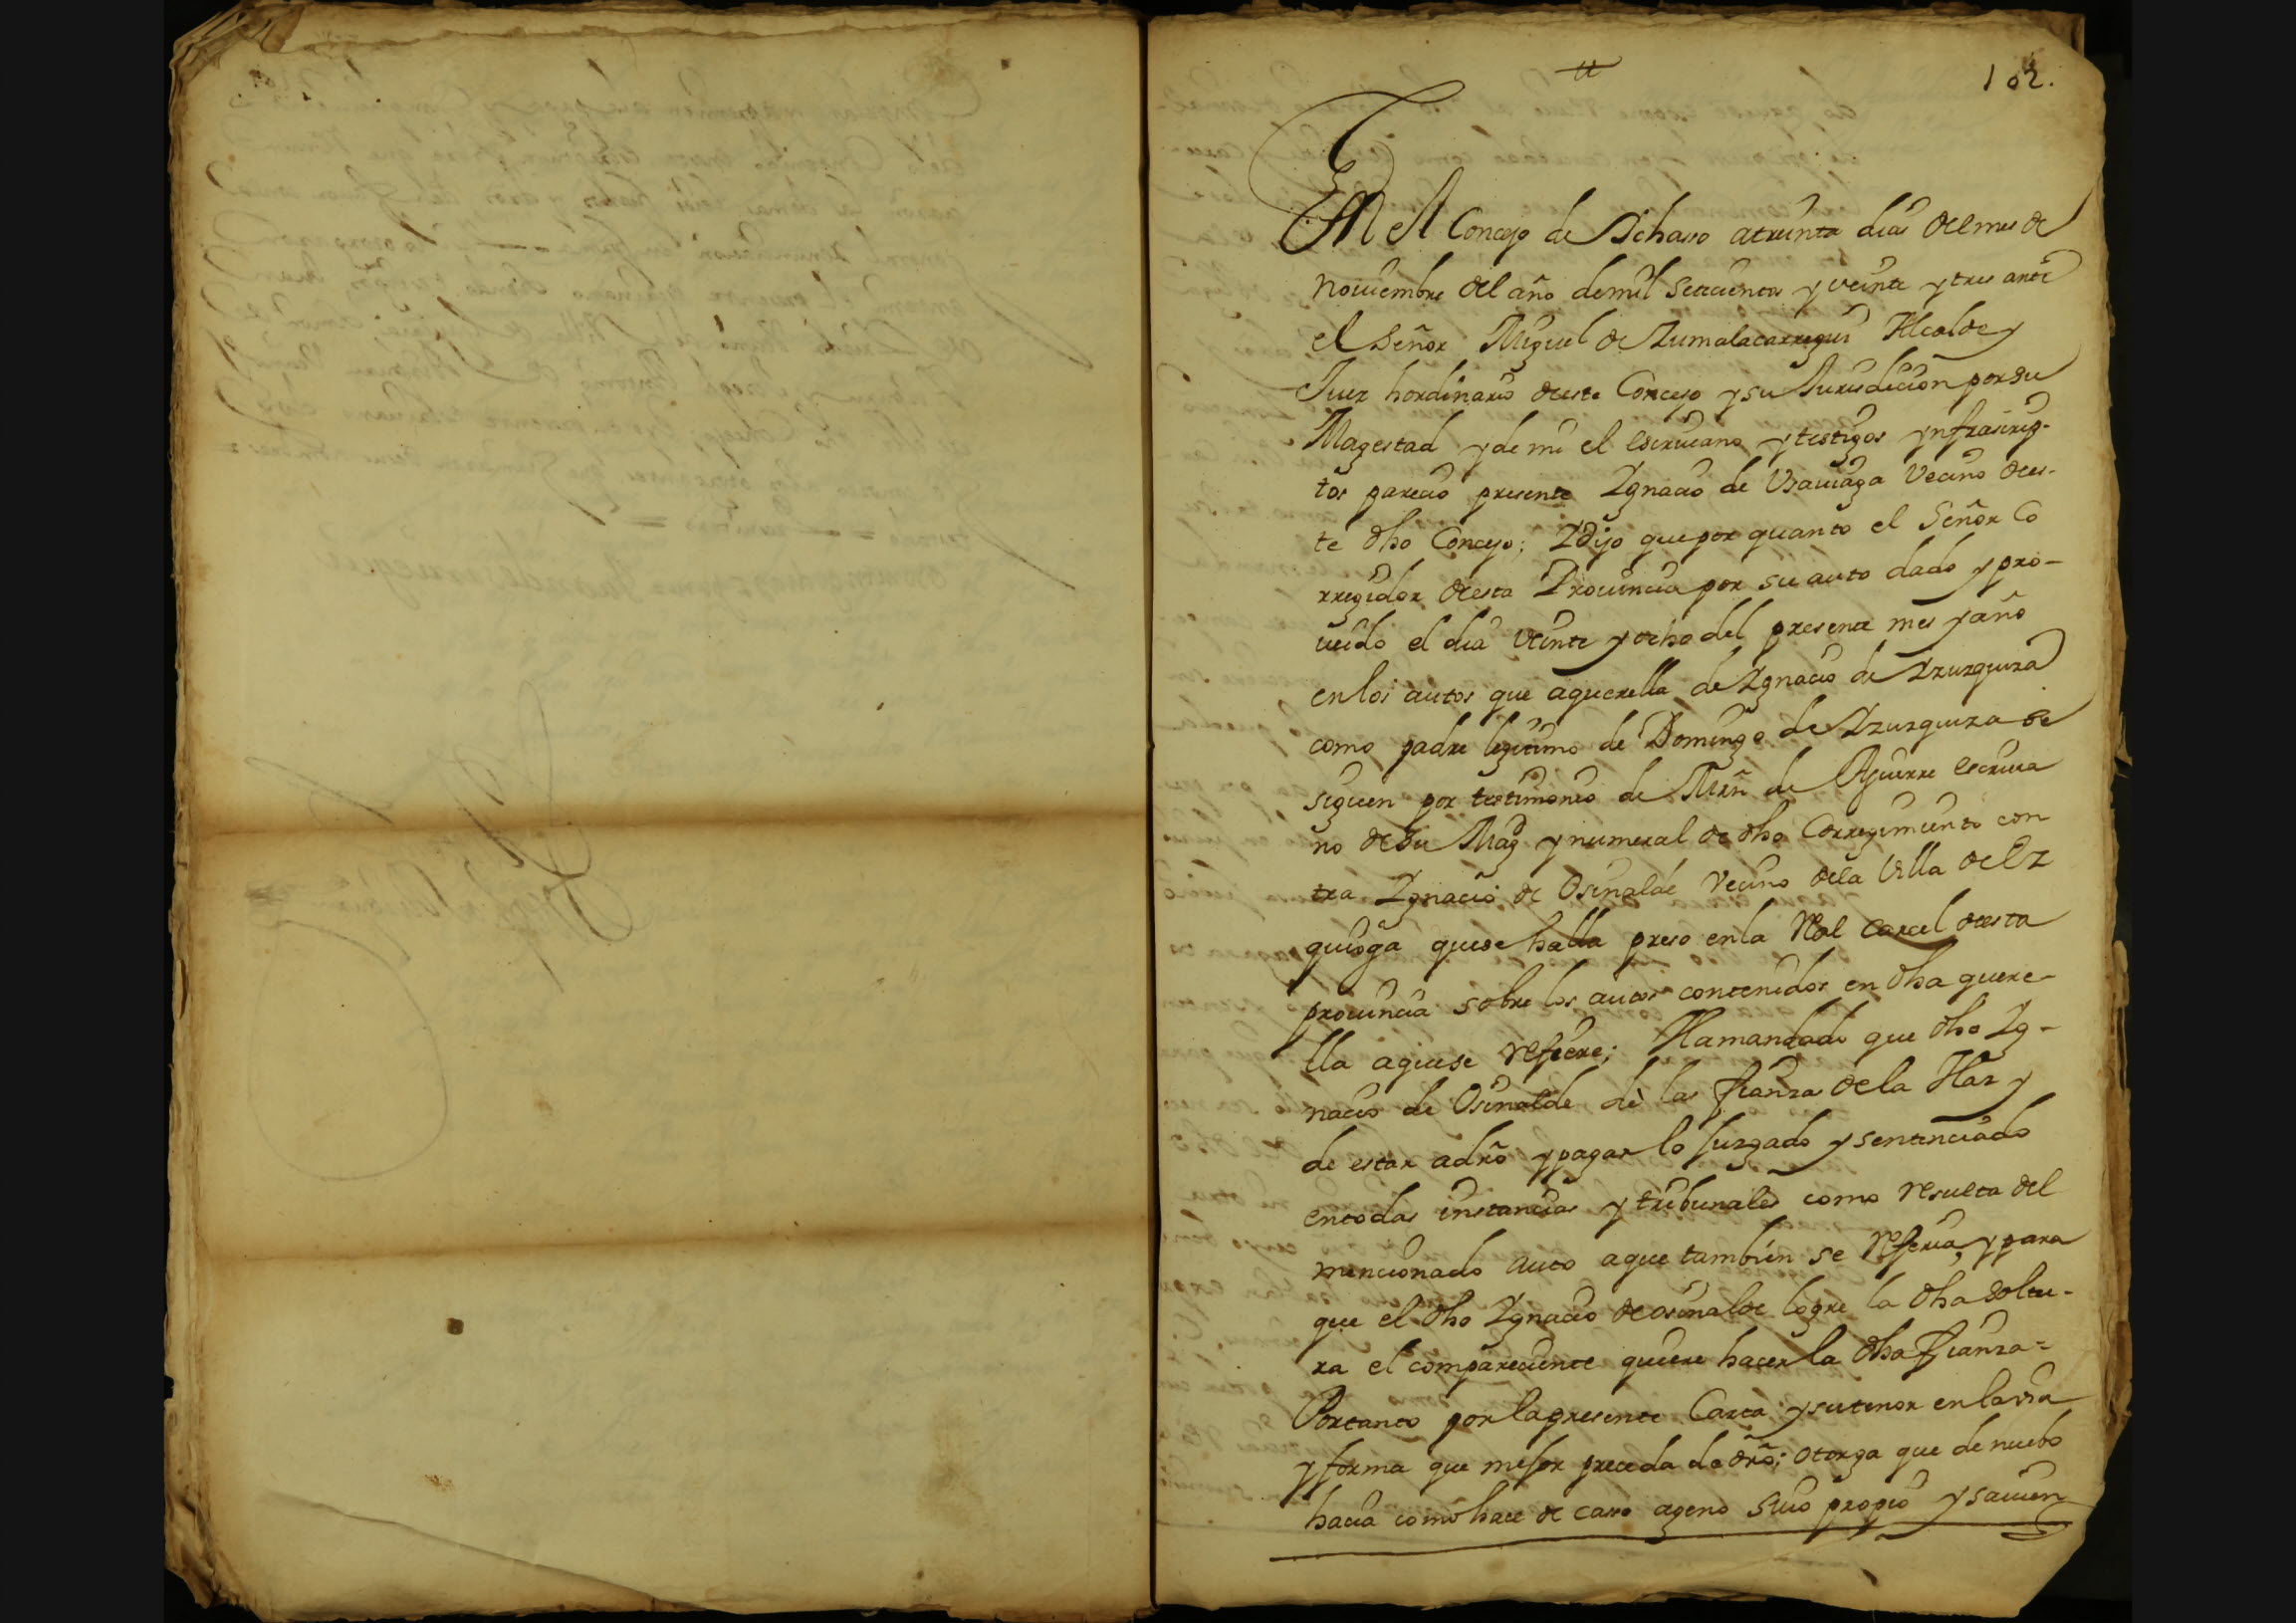 102.
En el Concejo de Ichaso atreinta dias del mes de
noviembre del año demil Setecientos y veinte y tres ante
el Señor Miguel de Zumalacarregui Alcalde y
Juez hordinario deeste Concejo y su Jurisdicion por su
Magestad y de mi el escrivano y testigos ynfrascrip-
tos parecio presente Ignacio de Usaviaga Vecino dees-
te dho Concejo; Y dijo que por quanto el Señor Co
rregidor deesta Provincia por su auto dado y pro-
veido el dia veinte y ocho del presente mes y año
en los autos que aquerella de Ignacio de Yzurquiza
como padre legitimo de Domingo de Yzurquiza se
siguen por testimonio de Mrn de Aguirre escriva
no de su Magd y numeral de dho Corregimiento con
tra Ignacio de Osinalde Vecino dela Villa de Ez
quioga quese halla preso enla Real Carcel deesta
provincia sobre los autos contenidos en dha quere-
lla aquese refiere; Hamandado que dho Ig-
nacio de Osinalde, dè las fianza de la Haz y
de estar adrõ y pagar lo Juzgado y sentenciado
entodas instancias y tribunales como resulta del
mencionado auto aque tambien se referia, y para
que el dho Ignacio de osinalde logre la dha soltu-
ra el compareciente quiere hacer la dha fianza=
Portanto por lapresente Carta y sutenor en la via
y forma que mejor proceda de drõ; otorga que de nuebo
hacia como hace de caso ageno suio propio y savien